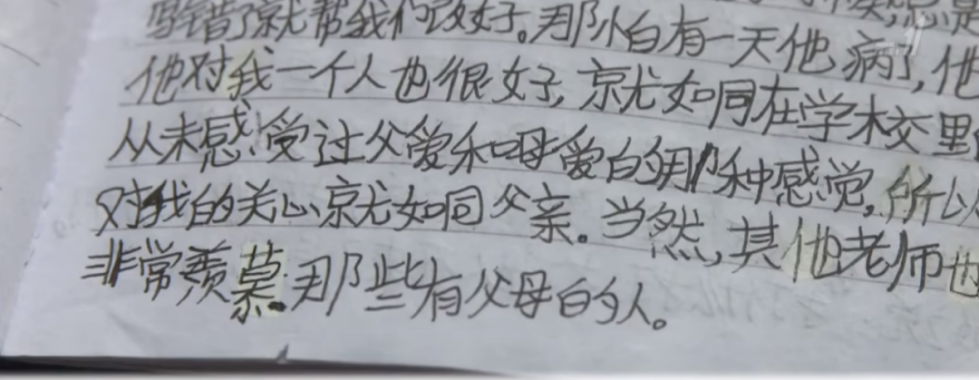 错了就帮我们改好。那怕有一天他病了,他
他对我一个人也很好,就如同在学校里
从未感受过父爱和母爱的那种感觉,所以
对我的关心就如同父亲。当然,其他老师也
非常羡慕。那些有父母的人。